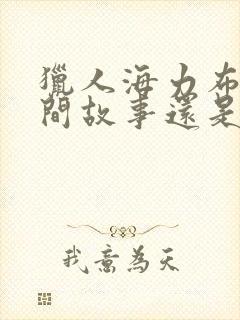 獵人海力布
間故事還是
我意為天